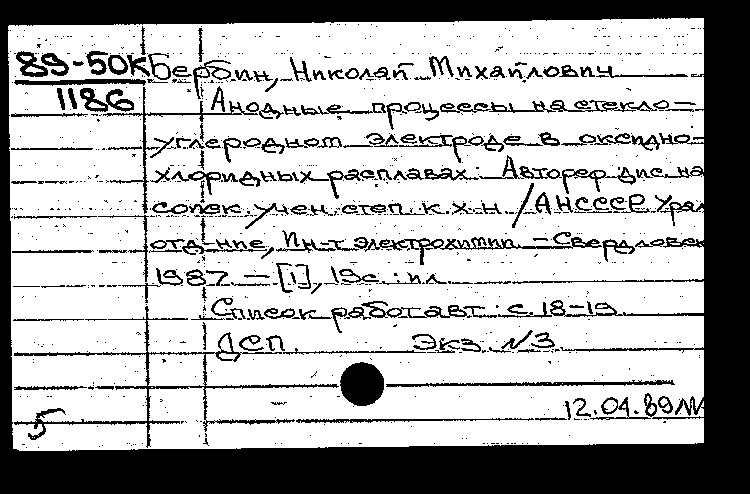 89-50К Бербин, Николай Михайлович
1186 Анодные процессы на стекло-
углеродном электроде в оксидно-
хлоридных расплавах: Автореф дис. на
соиск. учен. степ. к. х. н. / АН СССР Урал
отд-ние, Ин-т электрохимии. – Свердловск
1987. – [1], 19 с. : ил
Список работ авт.: с. 18-19.
ДСП. Экз. №3.
12.04.89
5